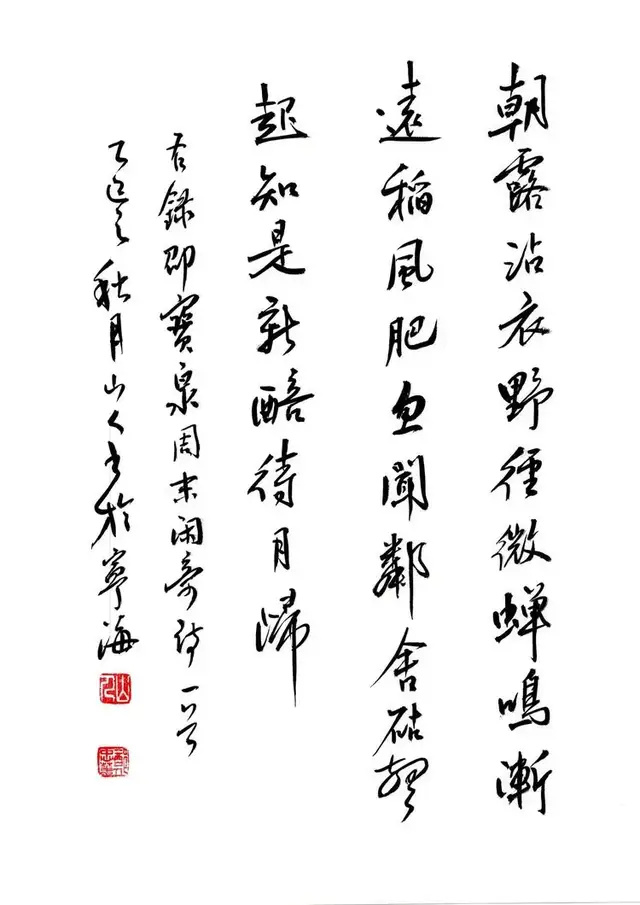 朝露沾衣野径微蝉鳴漸
遠稻風肥忽聞鄰舍砧聲
起知是新醅待月歸
右錄邵寶泉周末闲寄詩一首
乙巳之秋月山人書於寧海